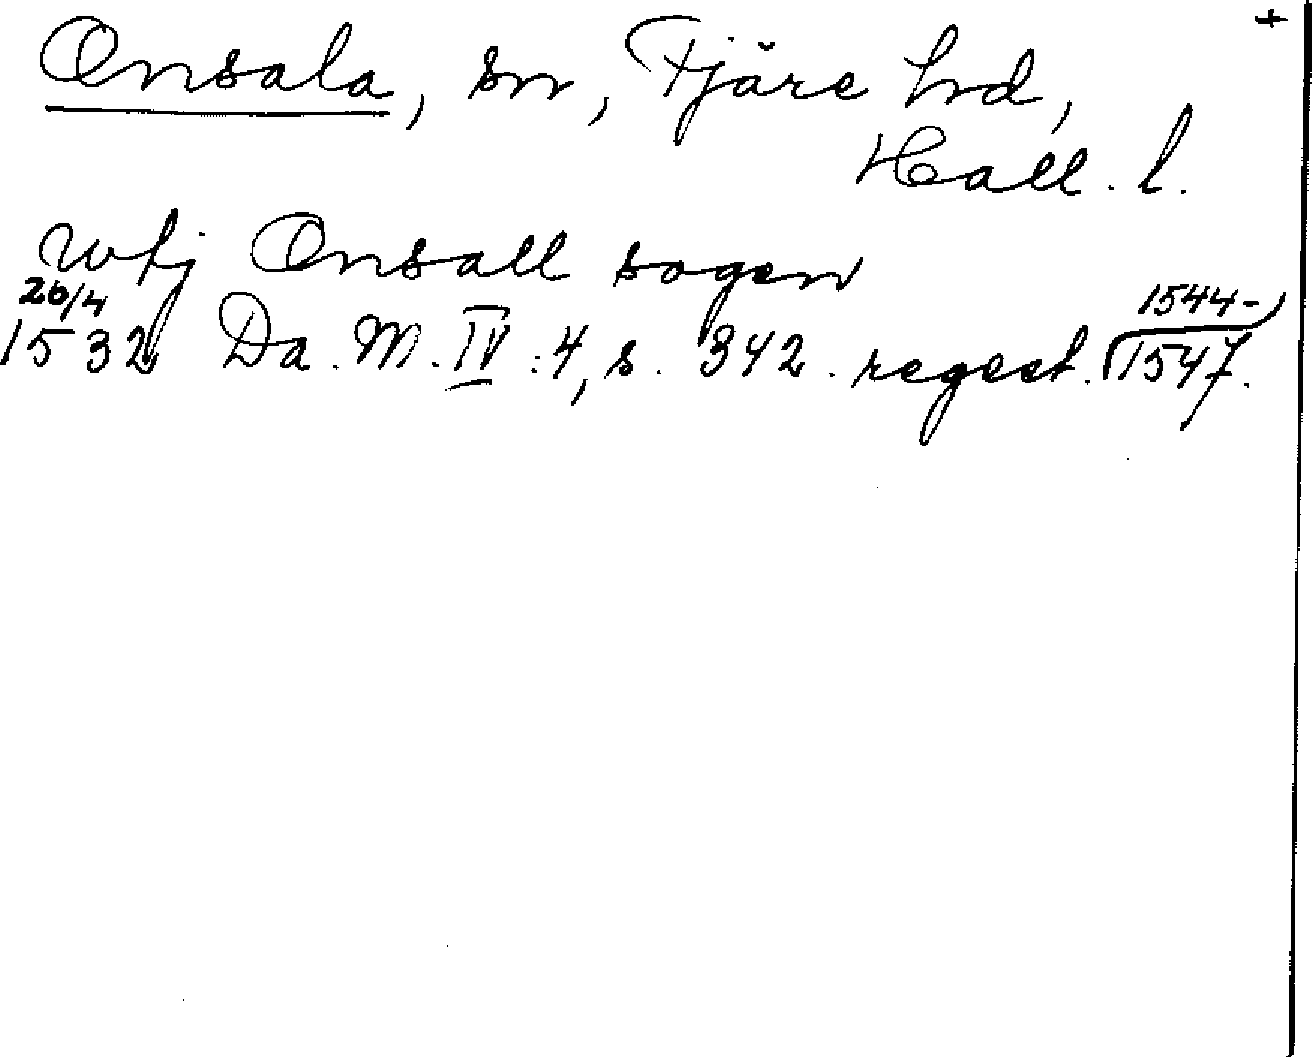 +
Onsala, sn, Fjäre hrd,
Hall. l.
wtj Onsall sogen
26/4 1544-
1532 Da. M. IV:4, s. 342. regest. 1547.